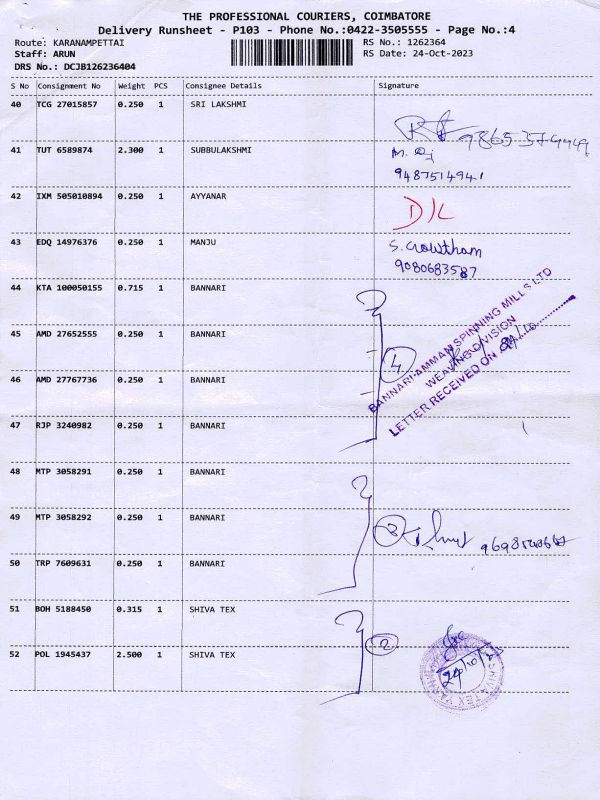 THE PROFESSIONAL COURIERS, COIMBATORE
Delivery Runsheet - P103 - Phone No.:0422-3505555 - Page No.:4
Route: KARANAMPETTAI RS No.: 1262364
Staff: ARUN RS Date: 24-Oct-2023
DRS No.: DCJB126236404
S No Consignment No Weight PCS Consignee Details Signature
40 TCG 27015857 0.250 1 SRI LAKSHMI
41 TUT 6589874 2.300 1 SUBBULAKSHMI
9487514941
42 IXM 505010894 0.250 1 AYYANAR D/L
43 EDQ 14976376 0.250 1 MANJU S. Gowtham
9080683587
44 KTA 100050155 0.715 1 BANNARI
45 AMD 27652555 0.250 1 BANNARI
46 AMD 27767736 0.250 1 BANNARI
4
BANNARI AMMAN SPINNING MILLS LTD
WEAVING DIVISION
LETTER RECEIVED ON
47 RJP 3240982 0.250 1 BANNARI
48 MTP 3058291 0.250 1 BANNARI
49 MTP 3058292 0.250 1 BANNARI
3
50 TRP 7609631 0.250 1 BANNARI
51 BOH 5188450 0.315 1 SHIVA TEX
2
52 POL 1945437 2.500 1 SHIVA TEX